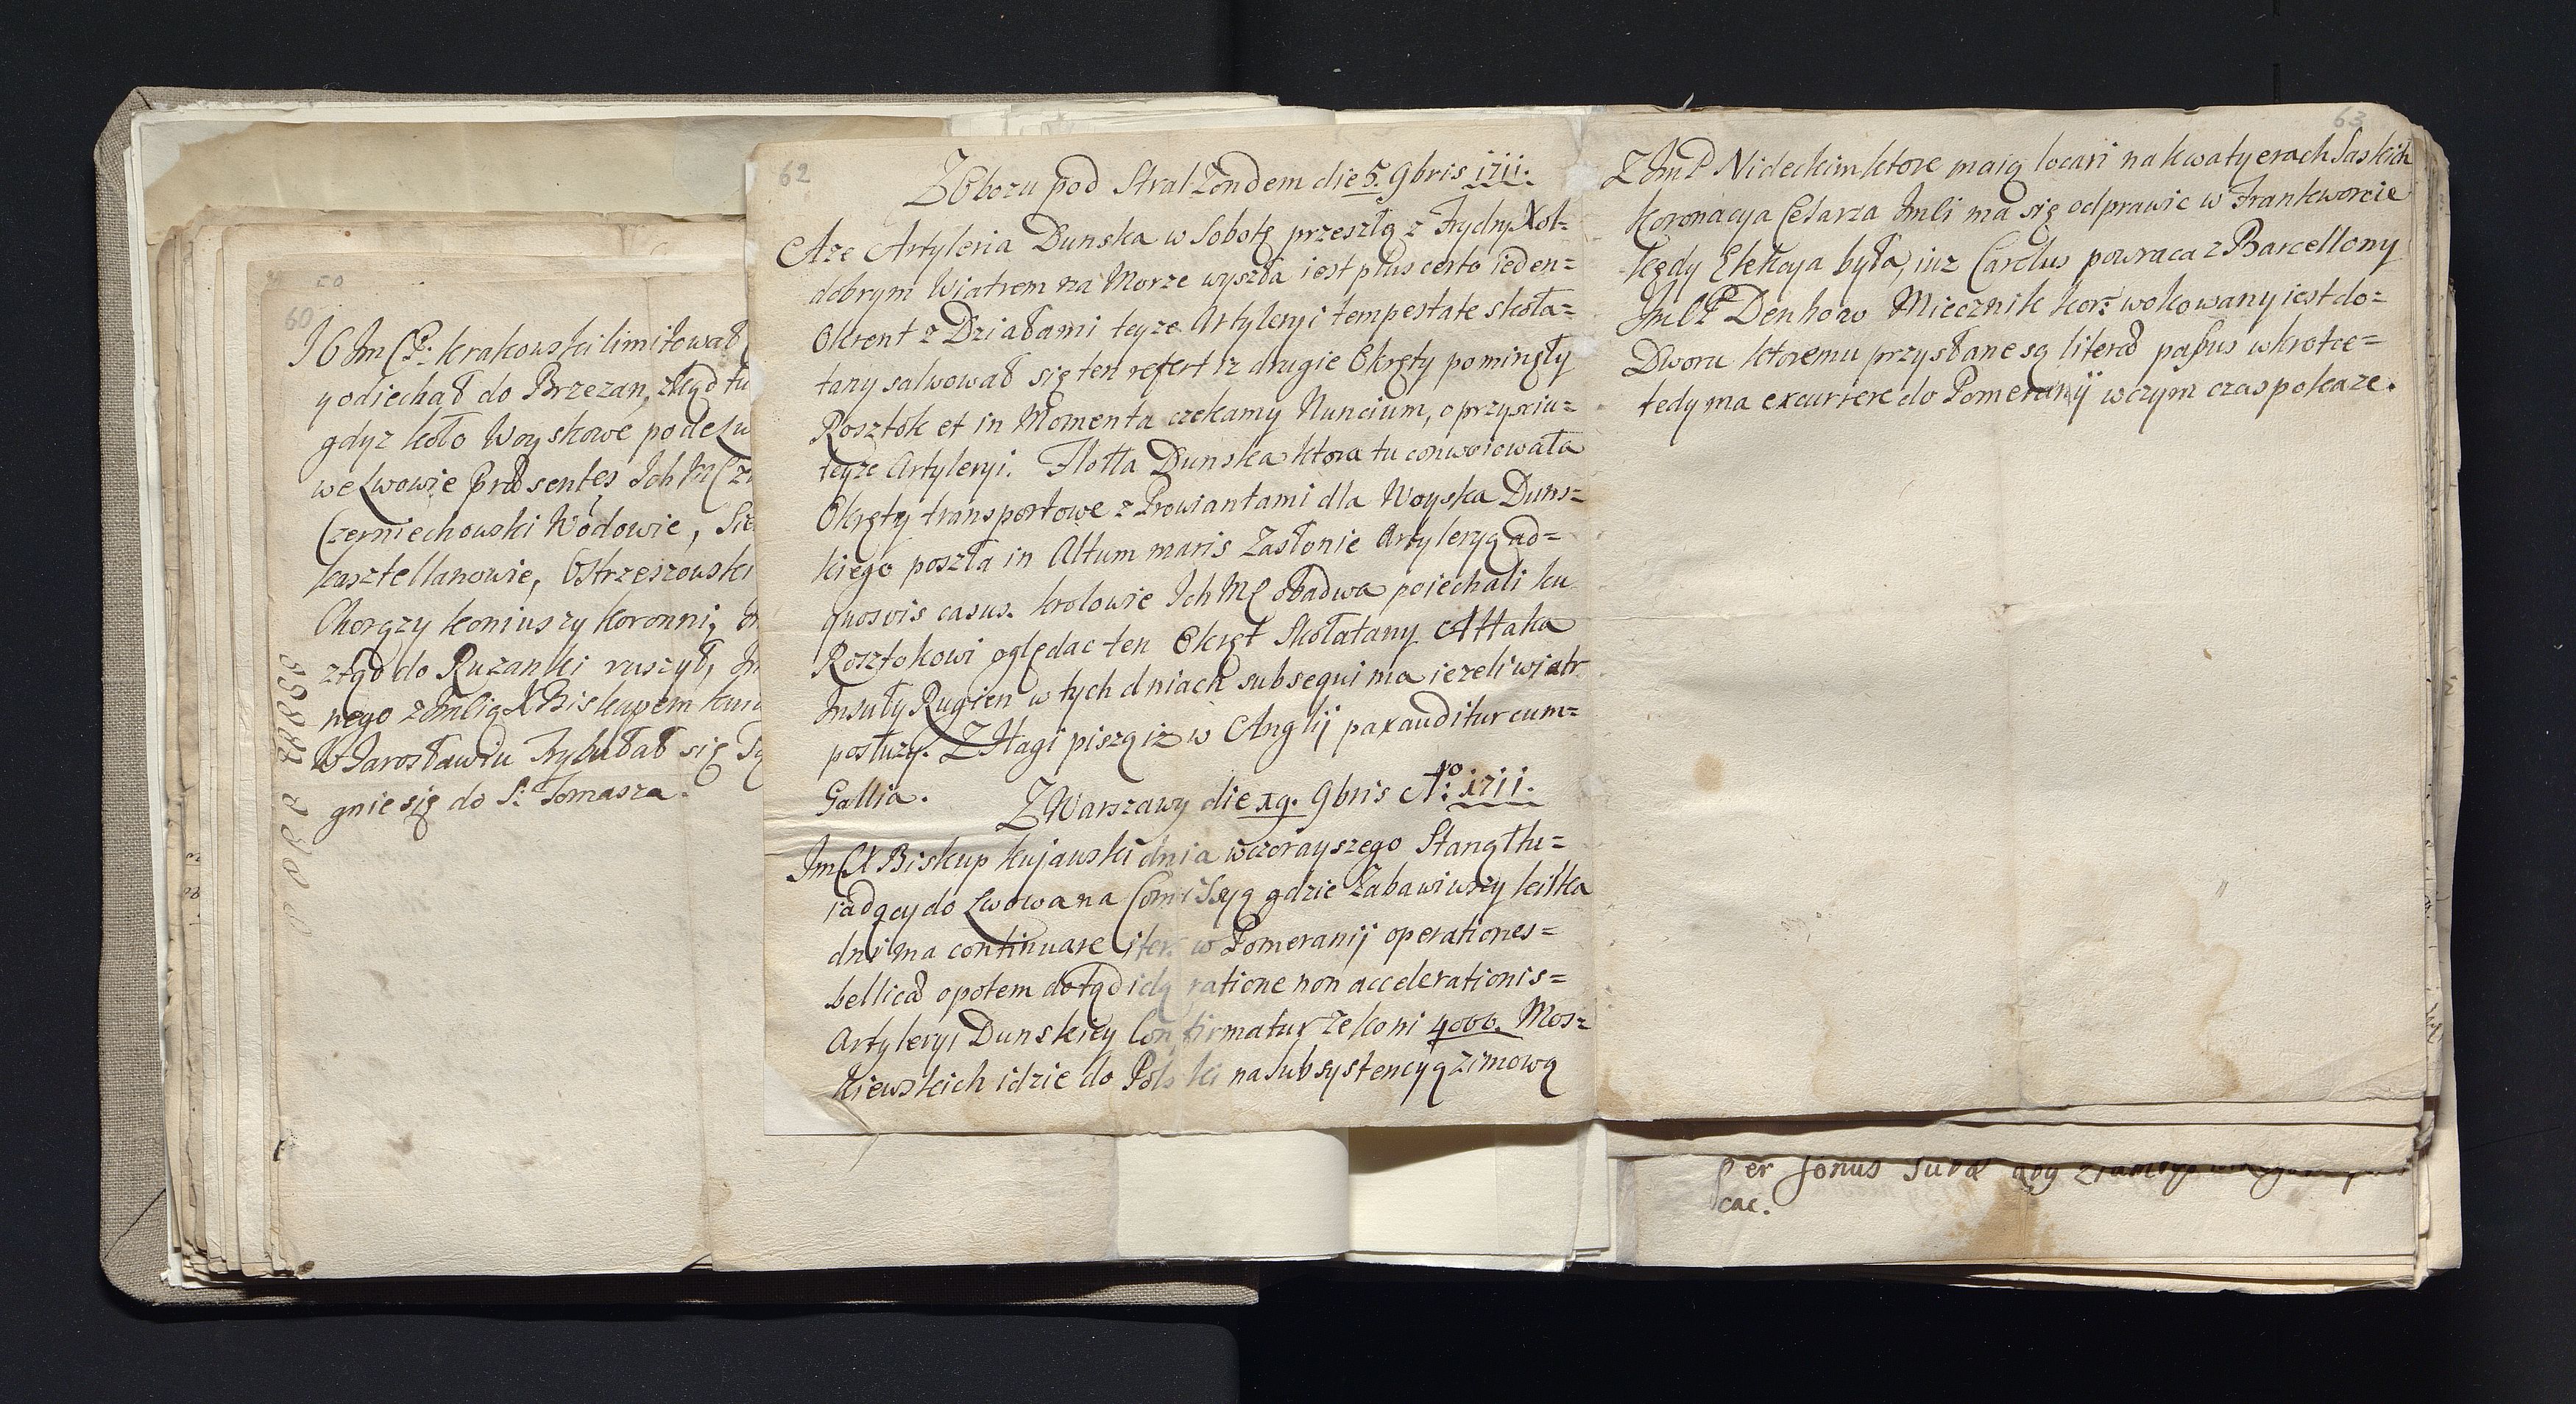 60
J O Jm C P. Krakowski limitował
y odiechał do Brzezan, zkąd tu
gdyz koło Woyskowe pode Lw
we Lwowie Præsentes Ich MC
Czerniechowski Wodowie, Sie
Kasztellanowie, Ostrzeszowski
Chorązy Koniuszy Koronni,
ztąd do Ruzanki ruszył, Im
nego z Jmlią X Biskupem
W Jarosławiu Trybułał się
gnie się do S. Tomasza.
62
Z Obozu pod Stralzondem die 5. 9bris 1711.
Aze Artyleria Dunska w Sobotę przeszłą z Frydrychol=
dobrym Wiatrem na Morze wyszła iest plus certo ieden=
Okrent z Działami teyze Artyleryi tempestate skoła=
tany salwował się ten refert iz drugie Okręty pominęły
Rosztok et in Momenta czekamy Nuncium, o przysciu=
teyze Artyleryi. Flotta Dunska ktora tu conwoiowała
Okręty transportowe z Prowiantami dla Woyska Duns=
kiego poszła in Altum maris Zasłonie Artyleryą ad=
quosvis casus. Krolowie Ich MC obadwa poiechali ku
Rosztokowi oględac ten Okręt Skołatany Attaka
Insuły Rugien w tych dniach subsequi ma iezeli wiatr
posłuzy. Z Hagi piszą iz w Anglij pax auditur cum=
Gallia.
Z Warszawy die 19. 9bris Ao: 1711.
Jm C X Biskup Kujawski dnia wczorayszego Stanął tu=
iadący do Lwowa na Comissyą gdzie Zabawiwszy kilka
dni ma continuare iter. w Pomeranij operationes=
bellicæ opotem dotąd idą ratione non accelerationis=
Artyleryi Dunskiey Confirmatur ze koni 4000. Mos=
kiewskich idzie do Polski na Subsystencyą zimową
63
Z Jm P Nideckim ktore maią locari na kwatyerach Saskich
Koronacya Cesarza Jmli ma się odprawic w Frankworcie
kędy Elekcya była, iuz Carolus powraca z Barcellony
Jm C P Denhow Miecznik kor: wokowany iest do=
Dworu ktoremu przysłane są literæ passus wkrotce=
tedy ma excurrere do Pomeranij w czym czas pokaze.
cac.